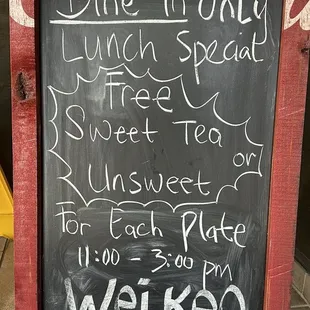 Dine in only
Lunch Special
Free
Sweet Tea
or
Unsweet
For Each Plate
11:00 - 3:00 pm